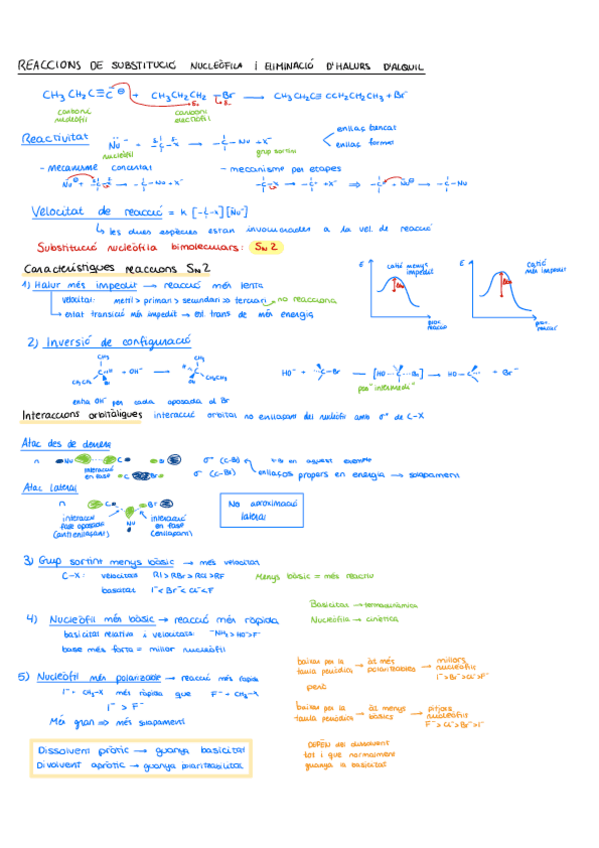 REACCIONS DE SUBSTITUCIÓ NUCLEÒFILA I ELIMINACIÓ D'HALURS D'ALQUIL
CH3 CH2 C≡C⊖ + CH3CH2CH2 -Br → CH3 CH2 C≡ CCH2CH2CH3 + Br⁻
carboni nucleòfil
carboni electròfil
Reactivitat
nucleòfil
grup sortint
enllaç trencat
enllaç format
- mecanisme concertat
- mecanisme per etapes
Velocitat de reacció = k [-C-X][Nu⁻]
les dues espècies estan involucrades a la vel. de reacció
Substitució nucleòfila bimoleculars: SN2
Característiques reaccions SN2
1) Halur més impedit → reacció més lenta
velocitat: metil > primari > secundari >> terciari → no reacciona
estat transició més impedit → est. trans de més energia
E
catió menys impedit
proc. reacció
E
catió més impedit
proc. reacció
2) Inversió de configuració
CH3
CH3
+ OH⁻ →
CH3CH2
CH2CH3
HO⁻ + C-Br → [HO---C---Br] → HO-C + Br⁻
per "intermedi"
entra OH⁻ per cada oposada al Br
Interaccions orbitàligues interacció orbital no enllaçant del nucleòfil amb σ* de C-X
Atac des de darrere
n Nu C Br σ* (C-Br)
interacció en fase
C Br σ (C-Br) enllaços propers en energia → solapament
Atac lateral
n C Br
Nu
interacció fase oposada (antienllaçant)
interacció en fase (enllaçant)
No aproximació lateral
3) Grup sortint menys bàsic → més velocitat
C-X: velocitat RI > RBr > RCl > RF
Menys bàsic = més reactiu
basicitat I⁻ < Br⁻ < Cl⁻ < F⁻
Basicitat → termodinàmica
Nucleòfila → cinètica
4) Nucleòfil més bàsic → reacció més ràpida
basicitat relativa i velocitats: ⁻NH2 > HO⁻ > F⁻
base més forta = millor nucleòfil
5) Nucleòfil més polaritzable → reacció més ràpida
I⁻ + CH3-X més ràpida que F⁻ + CH3-X
I⁻ > F⁻
Més gran ⇒ més solapament
baixar per la taula periòdica → és més polaritzable → millors nucleòfils I⁻ > Br⁻ > Cl⁻ > F⁻
però
baixar per la taula periòdica → és menys bàsics → pitjors nucleòfils F⁻ > Cl⁻ > Br⁻ > I⁻
DEPÈN del dissolvent
tot i que normalment
guanya la basicitat
Dissolvent pròtic → guanya basicitat
Divolvent apròtic → guanya polaritzabilitat